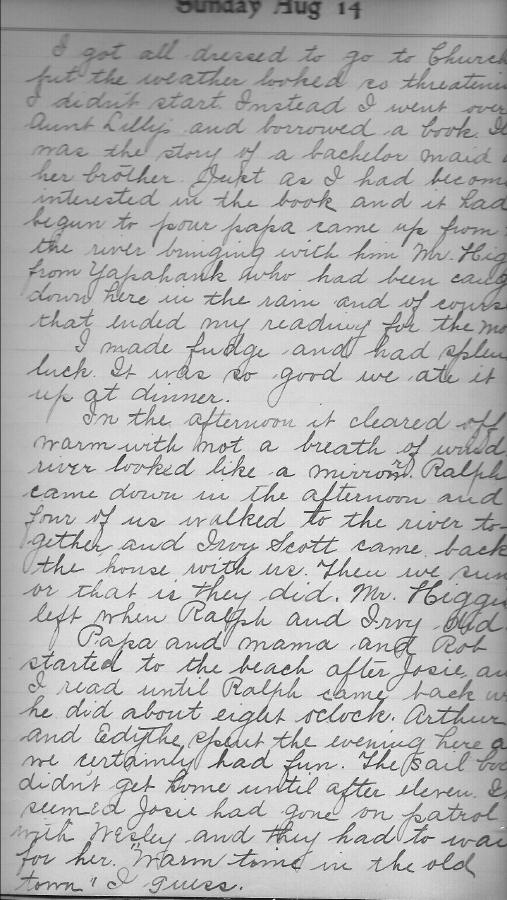 Sunday Aug 14
I got all dressed to go to Church
but the weather looked so threatenin
I didn't start. Instead I went over
Aunt Lilly's and borrowed a book. It
was the story of a bachelor maid
her brother. Just as I had becom
interested in the book and it had
begun to pour papa came up from
the river bringing with him Mr. Hig
from Yapahank who had been caug
down here in the rain and of cours
that ended my reading for the mo
I made fudge and had splen
luck. It was so good we ate it
up at dinner.
In the afternoon it cleared off
warm with not a breath of wind
river looked like a mirror. Ralph
came down in the afternoon and
four of us walked to the river to-
gether and Irvy Scott came back
the house with us. Then we sun
or that is they did. Mr. Higgi
left when Ralph and Irvy did
Papa and mama and Rob
started to the beach after Josie, an
I read until Ralph came back w
he did about eight oclock. Arthur
and Edythe spent the evening here a
we certainly had fun. The sail boa
didn't get home until after eleven. It
seemed Josie had gone on patrol
with Wesley and they had to wai
for her. "Warm time in the old
town" I guess.